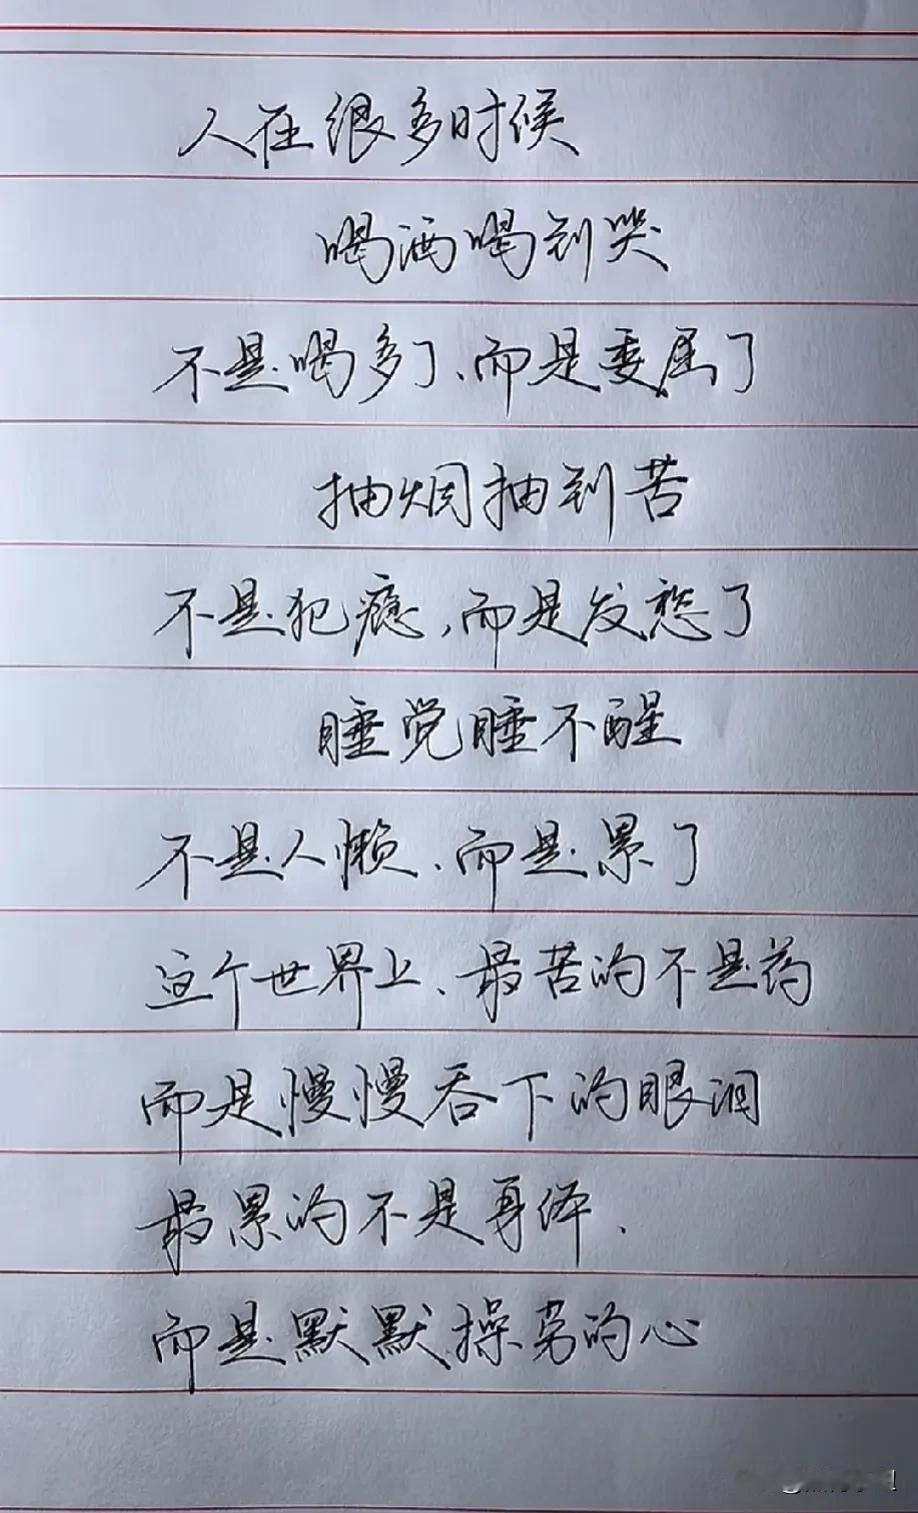 人在很多时候
喝酒喝到哭
不是喝多了、而是委屈了
抽烟抽到苦
不是犯瘾,而是发愁了
睡觉睡不醒
不是人懒、而是累了
这个世界上、最苦的不是药
而是慢慢吞下的眼泪
最累的不是身体、
而是默默操劳的心